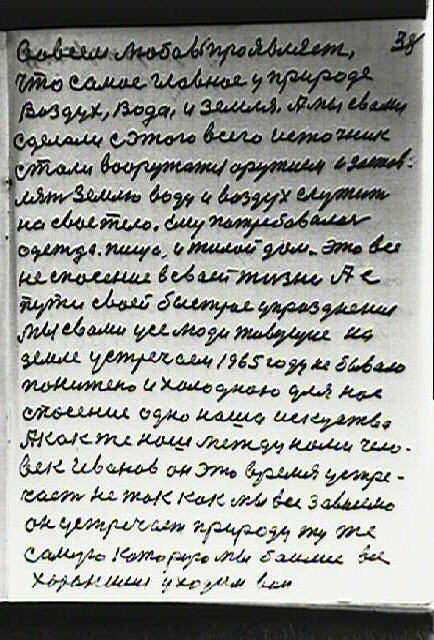 38
Со всем любовь проявляет,
что самое главное у природе
воздух, вода, и земля. А мы свами
сделали с этого всего источник
стали вооружатся оружием и застов-
лять землю воду и воздух служить
на свое тело. Ему потребовалась
одежда. пища, и жилой дом. Это все
не спасение в своей жизни А с
пути своей быстрое упразднения
Мы свами усе люди живущие на
земле устречаем 1965 году не бывало
понижено и холодною для нас
спасение одно наша искуства
А как же наш между нами чело-
век Иванов он это время устре-
чает не так как мы все зависимо
он устречает природу ту же
самую которую мы боимся все
хоронимся уходим